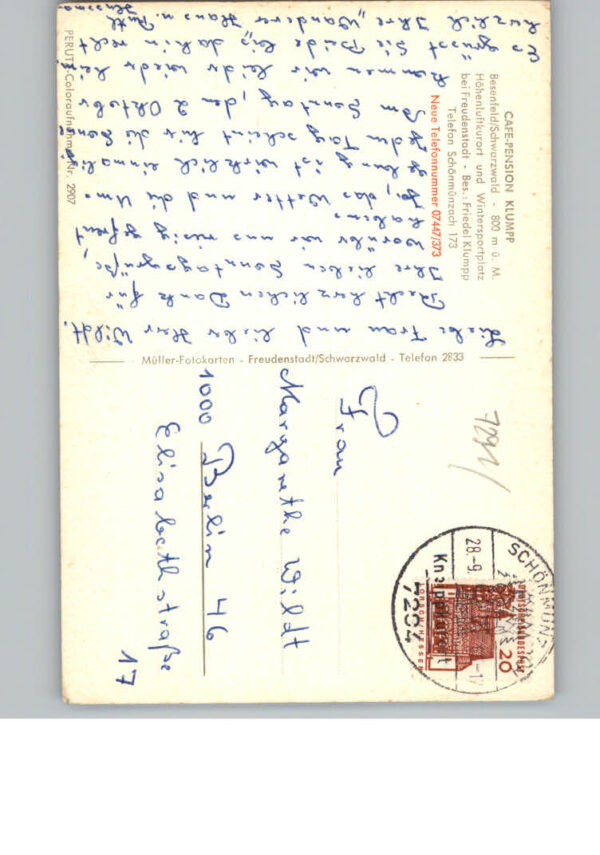 CAFE-PENSION KLUMPP
Besenfeld/Schwarzwald - 800 m ü. M.
Höhenluftkurort und Wintersportplatz
bei Freudenstadt - Bes.: Friedel Klumpp
Telefon Schönmünzach 173
Neue Telefonnummer 07447/373
Liebe Frau und lieber Herr Wildt.
Recht herzlichen Dank für
Ihre lieben Sonntagsgrüße,
worüber wir uns riesig gefreut
haben.
Ja, das Wetter und die Um-
gebung ist wirklich einmalig
jeden Tag scheint hier die Sonne
Am Sonntag, den 2 Oktober
kommen wir leider wieder heim
Es grüsst Sie Beide bis dahin recht
herzlich Ihre "Wanderer Hans u. Ruth
PERUTZ-Coloraufnahme Nr. 2907
Müller-Fotokarten - Freudenstadt/Schwarzwald - Telefon 2833
7291/
Frau
Margarethe Wildt
1000 Berlin 46
Elisabethstraße
17
SCHÖNMÜNZ
28.-9.
7294
DEUTSCHE BUNDESPOST
20
LORSCH/HESSEN